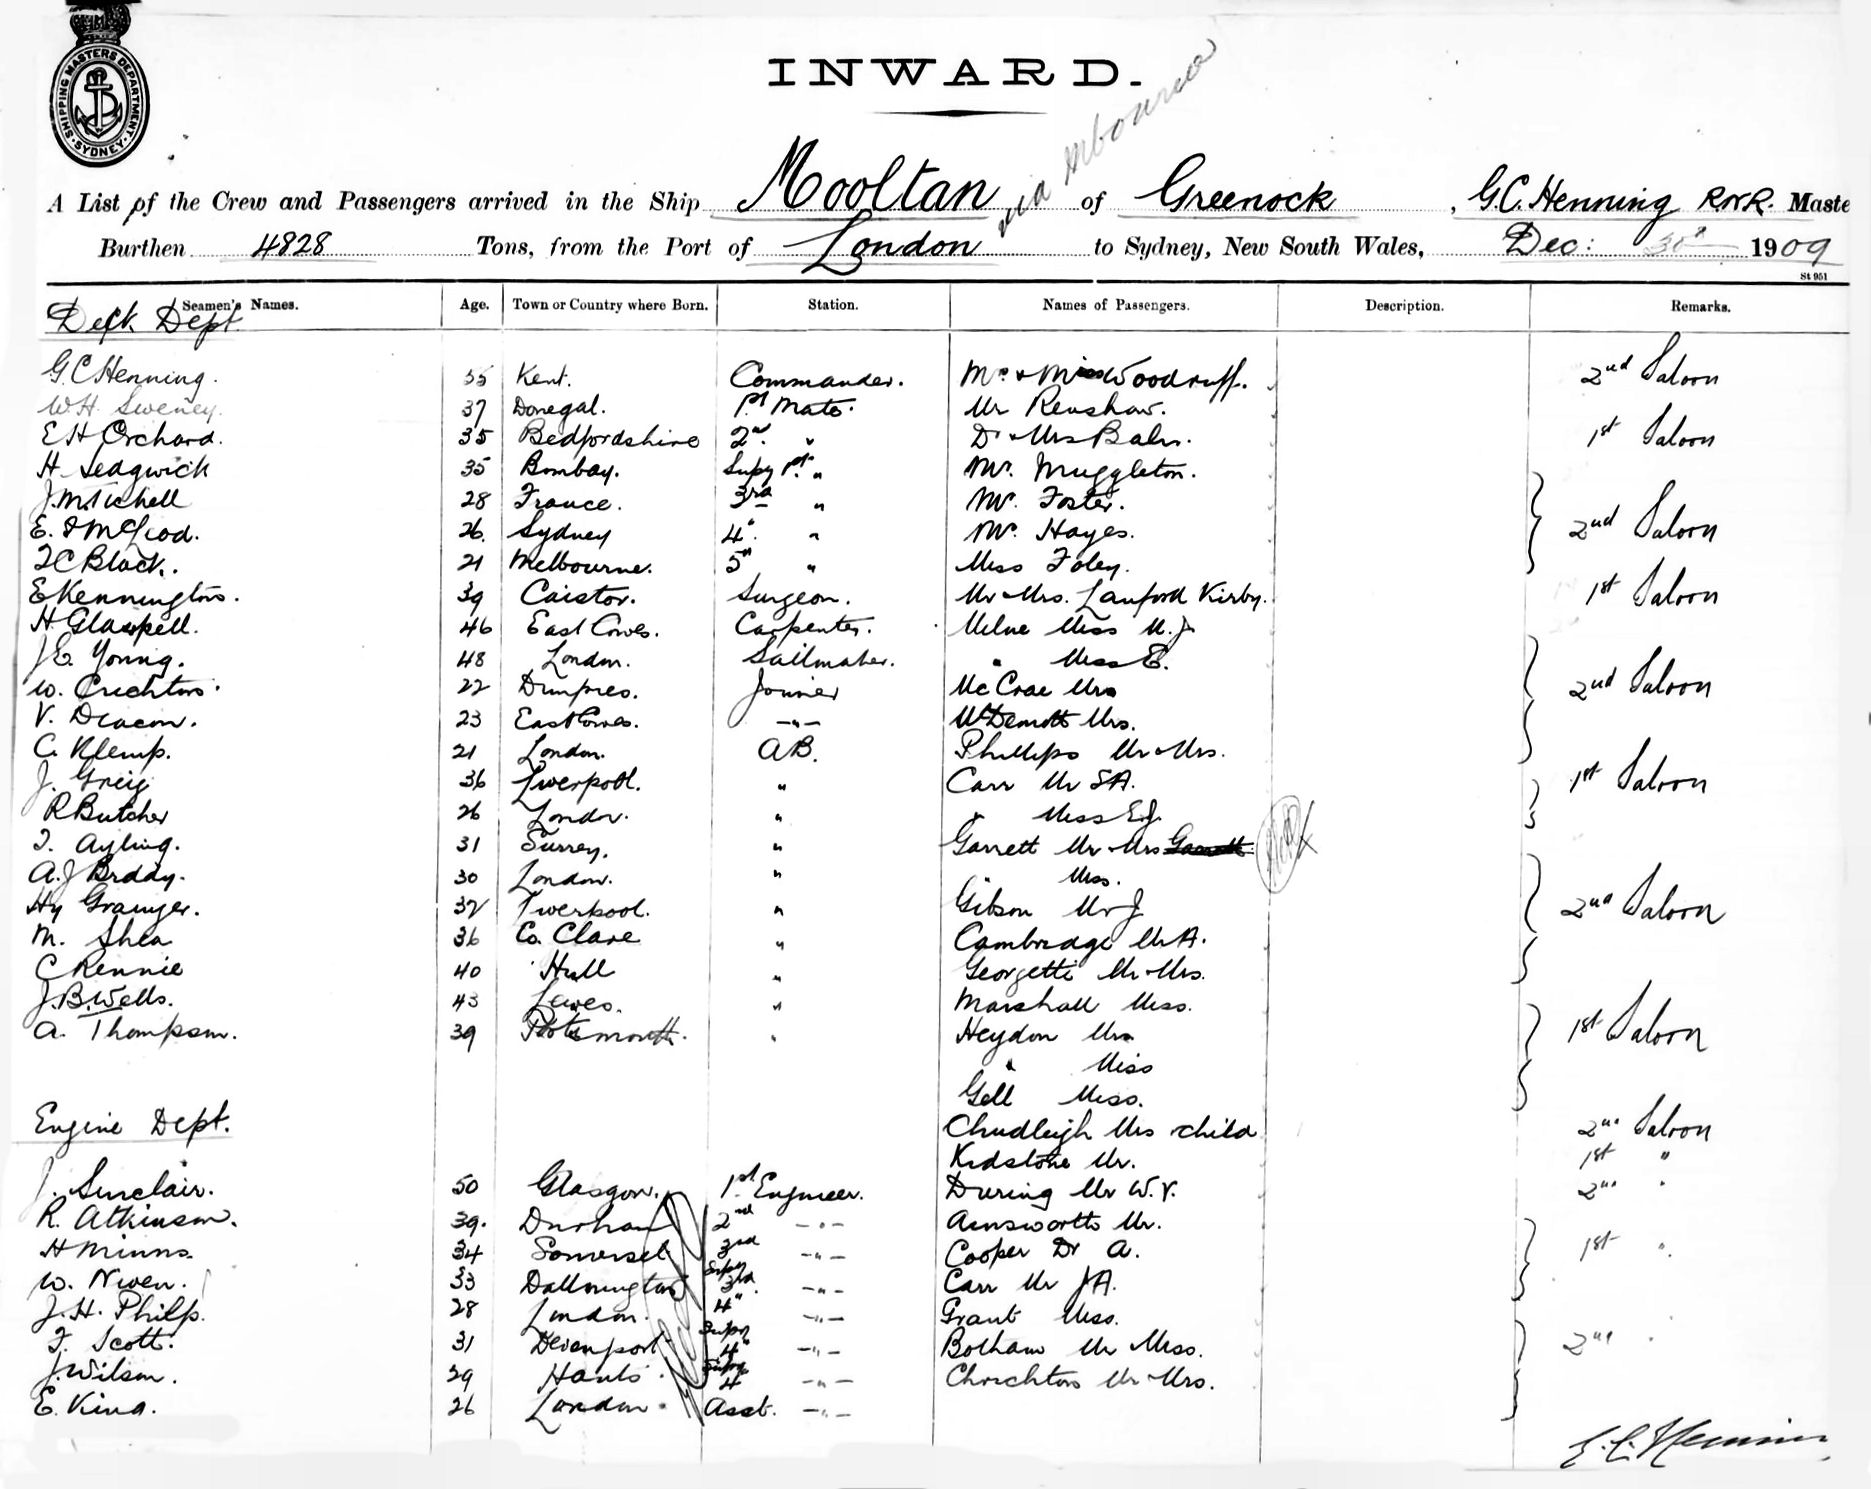 SHIPPING MASTERS DEPARTMENT · SYDNEY ·
INWARD.
via
A List of the Crew and Passengers arrived in the Ship Mooltan of Greenock, G.C. Henning RNR. Maste
Burthen 4828 Tons, from the Port of London to Sydney, New South Wales, Dec: 30th 1909
St 951
Seamen's Names. Age. Town or Country where Born. Station. Names of Passengers. Description. Remarks.
Deck Dept.
G.C Henning. 55 Kent. Commander. Mr. & Miss Woodruff. 2nd Saloon
W.H. Sweney. 37 Donegal. 1st Mate. Mr Renshaw.
E H Orchard. 35 Bedfordshire 2nd. " Dr & Mrs Balm. 1st Saloon
H Sedgwick 35 Bombay. Supy 1st. " Mr. Muggleton.
J. Mitchell 28 France. 3rd " Mr. Foster.
26. Sydney 4th. " Mr. Hayes. 2nd Saloon
Black. 21 Melbourne. 5th " Miss Foley.
E Kennington. 39 Caistor. Surgeon. Mr & Mrs. Lanford Kirby. 1st Saloon
H Glaspell. 46 East Cowes. Carpenter. Milne Miss M. J
J E. Young. 48 London. Sailmaker. " Miss E.
W. Crichton. 22 Dumfries. Joinier McCrae Mrs 2nd Saloon
V. Deacon. 23 East Cowes. —"— McDemott Mrs.
C. Klemp. 21 London. AB. Phillips Mr & Mrs.
J. Greig 36 Liverpool. " Carr Mr S A. 1st Saloon
R Butcher 26 London. " " Miss E J.
T. Ayling. 31 Surrey. " Garrett Mr & Mrs Garrett
A. J Briddy. 30 London. " " Miss.
Hy Grainger. 32 Liverpool. " Gibson Mr J 2nd Saloon
M. Shea 36 Co. Clare " Cambridge Mr A.
C Rennie 40 Hull " Georgetti Mr & Mrs.
J. B. Wells. 43 Lewes. " Marshall Miss.
A. Thompson. 39 Portsmouth. " Heydon Mrs 1st Saloon
" Miss
Gell Miss.
Engine Dept. Chudleigh Mrs & child 2nd Saloon
Kidstone Mr. 1st "
J. Sinclair. 50 Glasgow. 1st Engineer. During Mr W. V. 2nd "
R. Atkinson. 39. Durham 2nd —"— Ainsworth Mr.
H Minns. 34 Somerset 3rd —"— Cooper Dr A. 1st "
W. Niven. 33 Dallington Supy 3rd. —"— Carr Mr J A.
J. H. Philp. 28 London. 4th —"— Grant Miss.
F. Scott. 31 Devenport Supy 4th —"— Botham Mr & Miss. 2nd "
J. Wilson. 29 Hants. Supy 4 —"— Chrichton Mr & Mrs.
E. King. 26 London. Asst. —"—
G. C. Henning